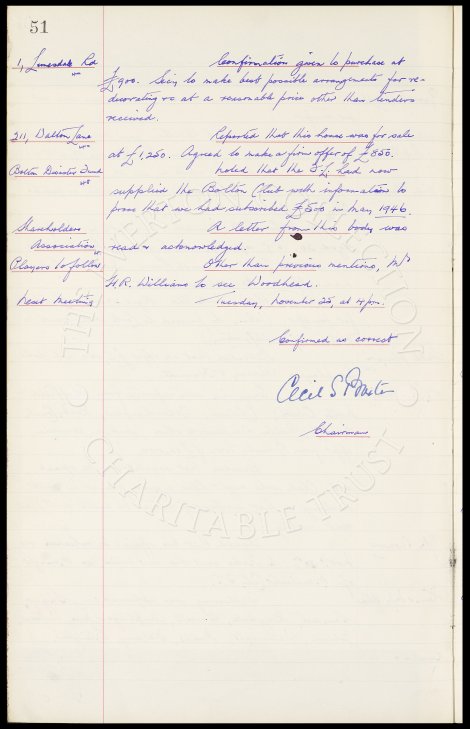 51
1, Lonesdale Rd Confirmation given to purchase at
£900. Secy to make best possible arrangements for re-
decorating &c at a reasonable price other than tenders
received.
211, Dalton Lane Reported that this house was for sale
at £1,250. Agreed to make a firm offer of £850.
Bolton Disaster Fund Noted that the F.L. had now
supplied the Bolton Club with information to
prove that we had subscribed £500 in May 1946.
Shareholders A letter from this body was
Association read & acknowledged.
Players to follow Other than previous mentions, Mr
H.R. Williams to see Woodhead.
Next Meeting Tuesday, November 25, at 4pm.
Confirmed as correct
Cecil S Baxter
Chairman
THE EVERTON COLLECTION
CHARITABLE TRUST